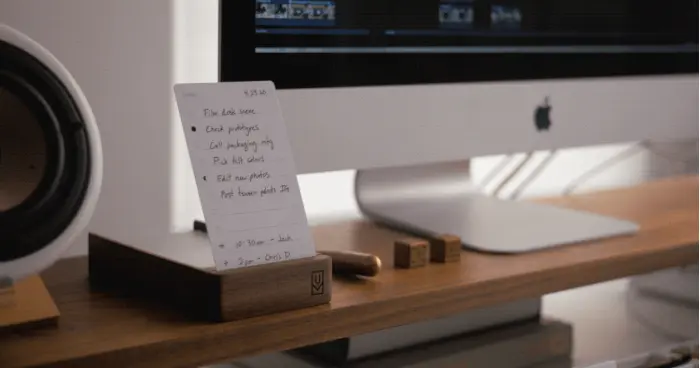 Film desk scene
Check prototypes
Call packaging mfg
Pick felt colors
Edit new photos
Post teaser photo IG
10:30am - Jack
2pm - Chris D